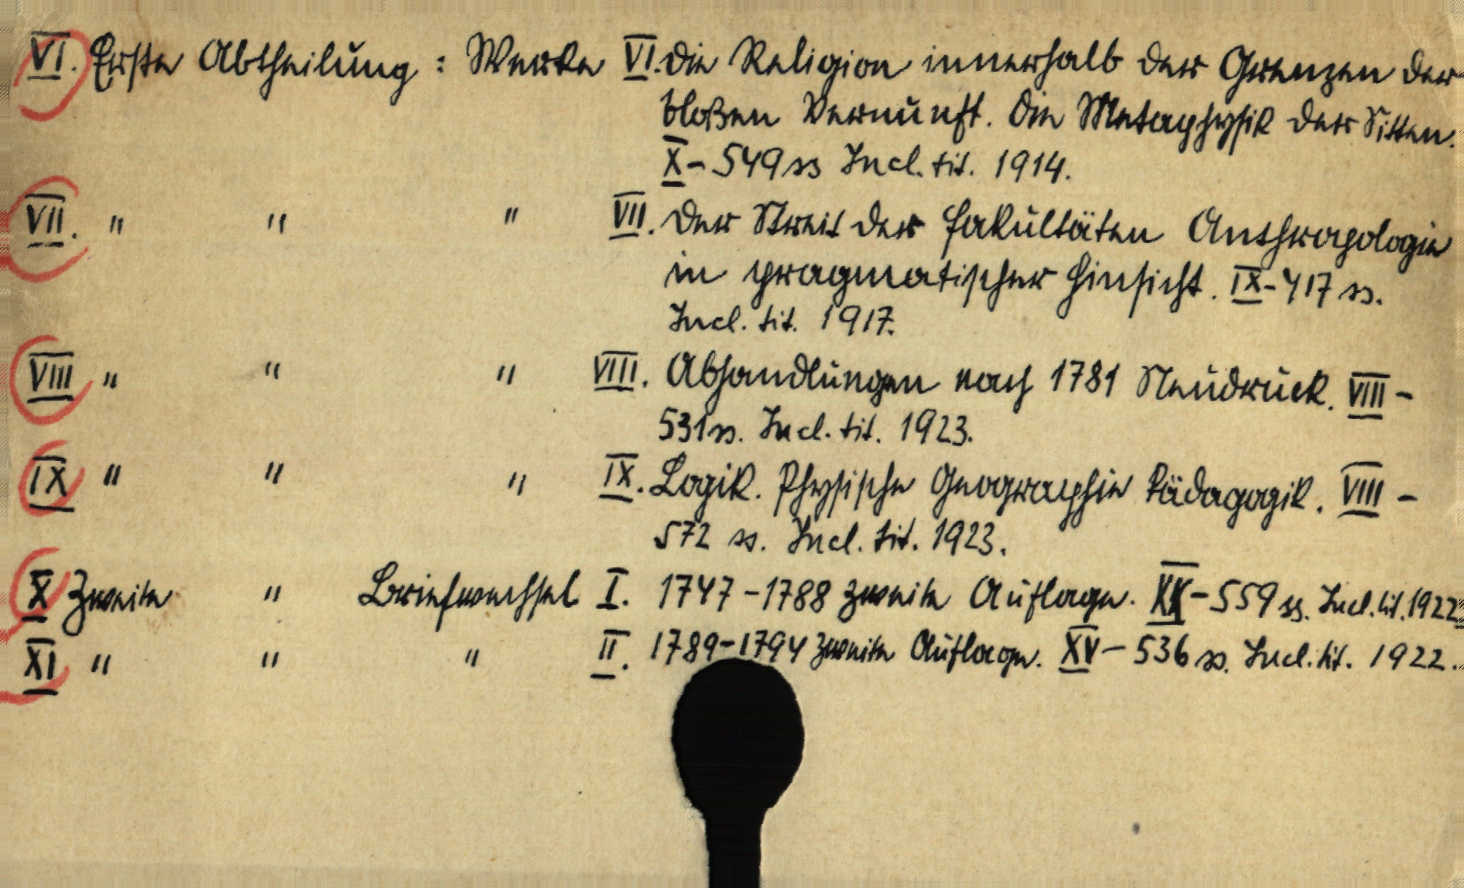 VI. Erste Abtheilung : Werke VI. Die Religion innerhalb der Grenzen der
bloßen Vernunft. Die Metaphysik der Sitten.
X - 549 ss Incl. tit. 1914.
VII. " " " VII. Der Streit der Fakultäten Anthropologie
in pragmatischer Hinsicht. IX - 417 ss.
Incl. tit. 1917.
VIII " " " VIII. Abhandlungen nach 1781 Neudruck. VIII -
531 ss. Incl. tit. 1923.
IX " " " IX. Logik. Physische Geographie Pädagogik. VIII -
572 ss. Incl. tit. 1923.
X Zweite " Briefwechsel I. 1747 - 1788 Zweite Auflage. XX - 559 ss. Incl. tit. 1922
XI " " " II. 1789 - 1794 Zweite Auflage. XV - 536 ss. Incl. tit. 1922.